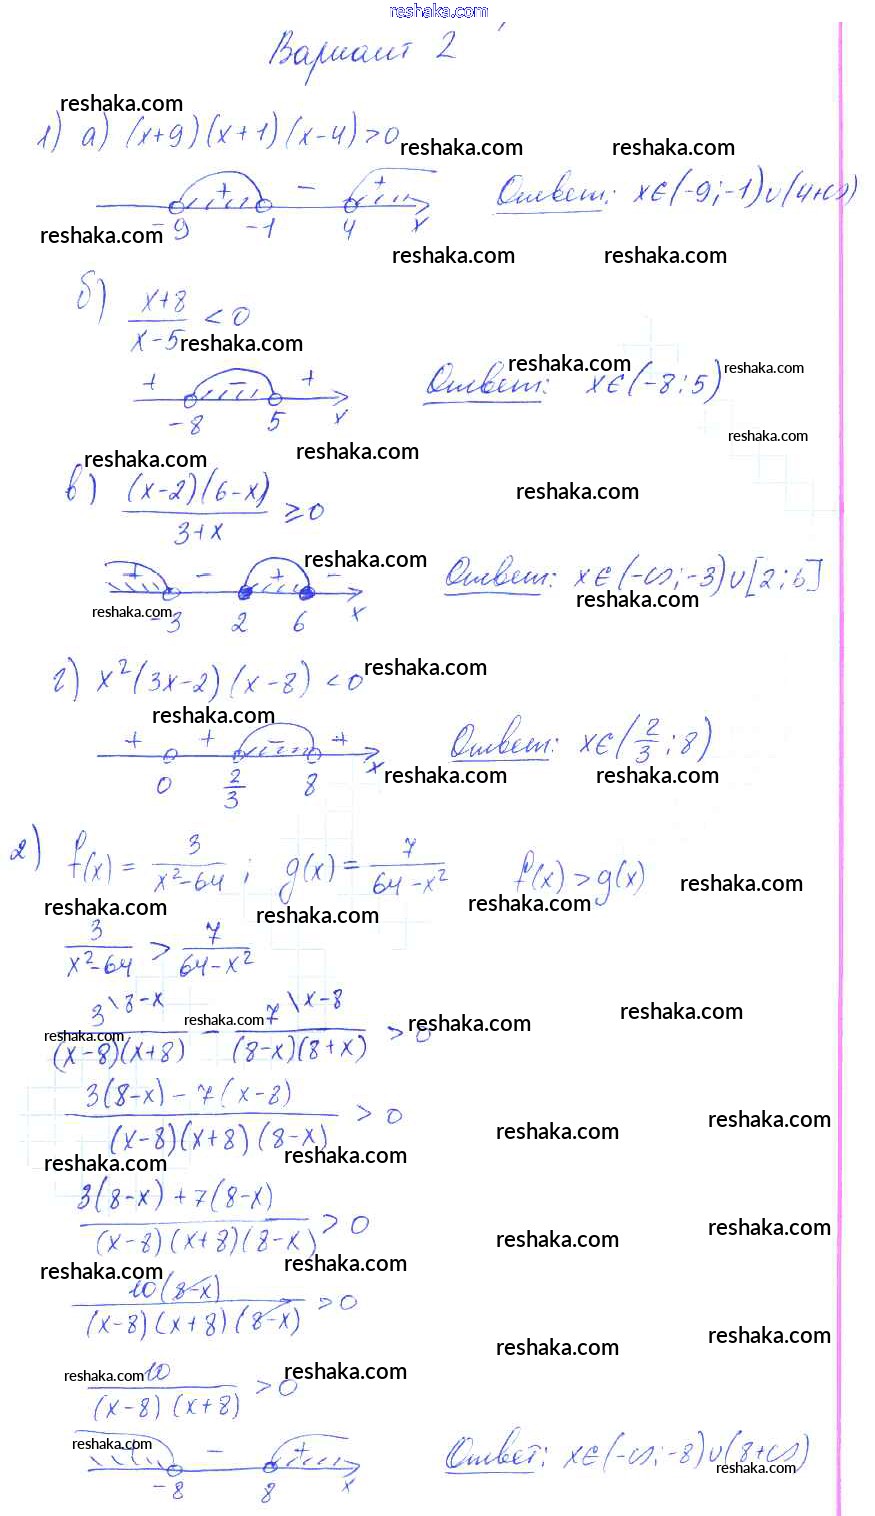 reshaka.com
Вариант 2
reshaka.com
1) а) (x+9)(x+1)(x-4)>0
reshaka.com reshaka.com
+ - +
-9 -1 4 x
Ответ: x∈(-9;-1)∪(4+∞)
reshaka.com
reshaka.com reshaka.com
б) (x+8)/(x-5) < 0
reshaka.com
reshaka.com reshaka.com
+ - +
-8 5 x
Ответ: x∈(-8;5)
reshaka.com
reshaka.com reshaka.com
reshaka.com
в) (x-2)(6-x)/(3+x) ≥ 0
reshaka.com
+ - + -
-3 2 6 x
Ответ: x∈(-∞;-3)∪[2;6]
reshaka.com reshaka.com
г) x²(3x-2)(x-8) < 0
reshaka.com
reshaka.com
+ + - +
0 2/3 8 x
Ответ: x∈(2/3;8)
reshaka.com reshaka.com
2) f(x) = 3/(x²-64); g(x) = 7/(64-x²) f(x)>g(x)
reshaka.com
reshaka.com reshaka.com reshaka.com
3/(x²-64) > 7/(64-x²)
3\8-x/((x-8)(x+8)) - 7\x-8/((8-x)(8+x)) > 0
reshaka.com reshaka.com reshaka.com reshaka.com
(3(8-x)-7(x-8))/((x-8)(x+8)(8-x)) > 0
reshaka.com reshaka.com
reshaka.com reshaka.com
(3(8-x)+7(8-x))/((x-8)(x+8)(8-x)) > 0
reshaka.com reshaka.com
reshaka.com reshaka.com
10(8-x)/((x-8)(x+8)(8-x)) > 0
reshaka.com reshaka.com
reshaka.com reshaka.com
10/((x-8)(x+8)) > 0
reshaka.com
+ - +
-8 8 x
Ответ: x∈(-∞;-8)∪(8+∞)
reshaka.com